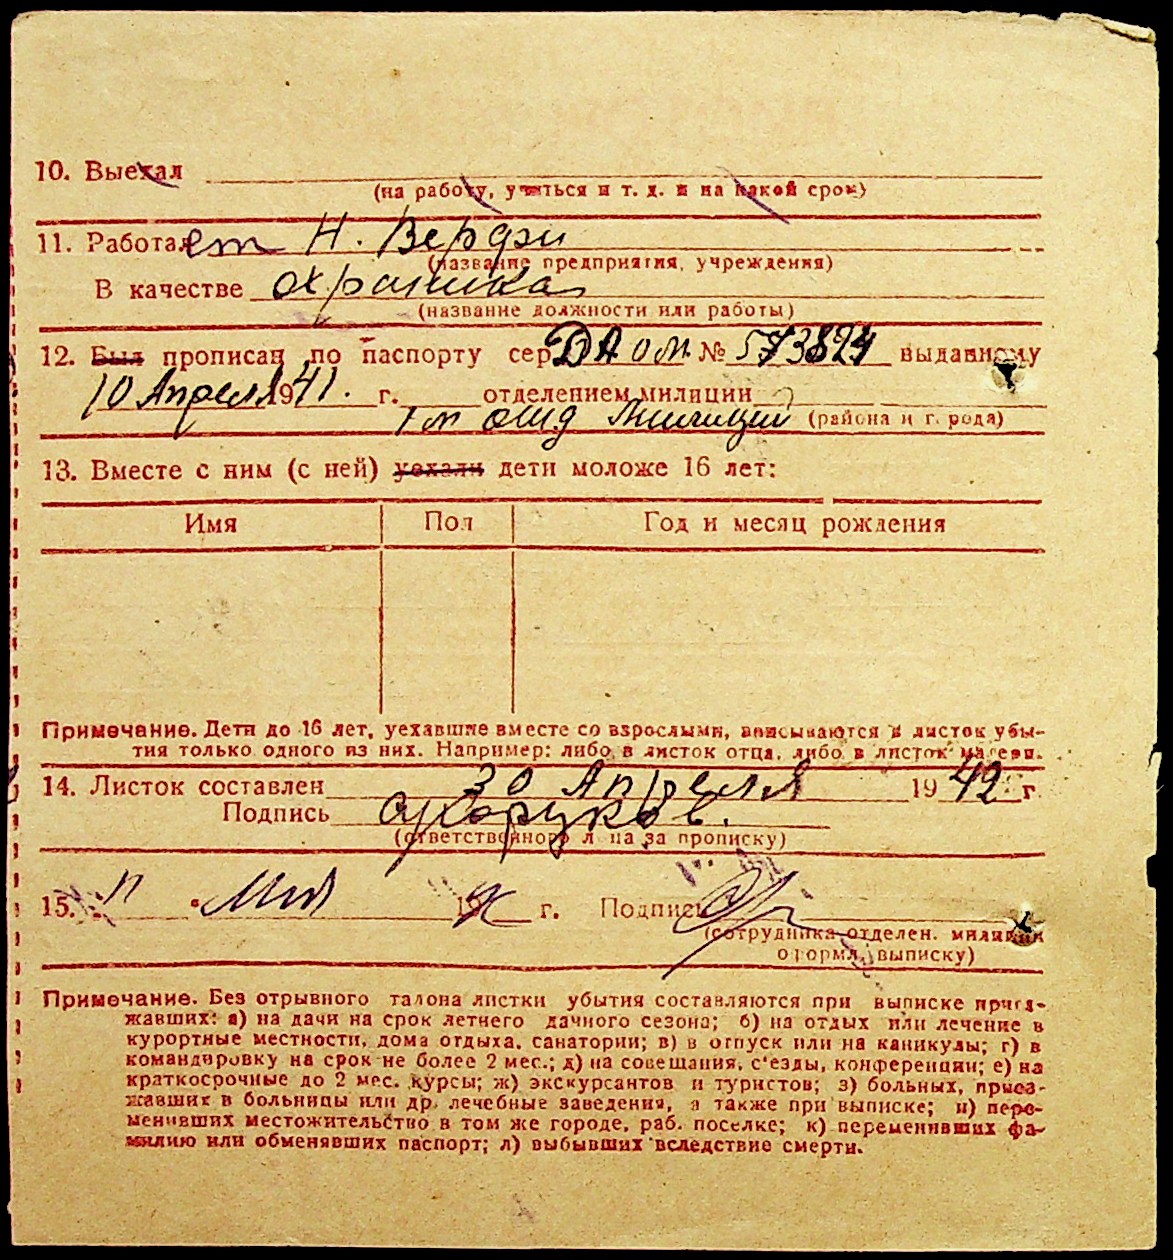 10. Выехал
(на работу, учиться и т. д. и на какой срок)
11. Работает Н. Верфи
(название предприятия, учреждения)
В качестве охраника
(название должности или работы)
12. Был прописан по паспорту сер. № 573824 выданному
10 Апреля 1941. г. отделением милиции
1м отд Милиции (района и города)
13. Вместе с ним (с ней) уехали дети моложе 16 лет:
Имя Пол Год и месяц рождения
Примечание. Дети до 16 лет, уехавшие вместе со взрослыми, вписываются в листок убы-
тия только одного из них. Например: либо в листок отца, либо в листок матери.
14. Листок составлен 30 Апреля 1942 г.
Подпись
(ответственного лица за прописку)
15. 11 Мая 19 г. Подпись
(сотрудника отделен. милиции
оформл. выписку)
Примечание. Без отрывного талона листки убытия составляются при выписке приез-
жавших: а) на дачи на срок летнего дачного сезона; б) на отдых или лечение в
курортные местности, дома отдыха, санатории; в) в отпуск или на каникулы; г) в
командировку на срок не более 2 мес.; д) на совещания, с'езды, конференции; е) на
краткосрочные до 2 мес. курсы; ж) экскурсантов и туристов; з) больных, приез-
жавших в больницы или др. лечебные заведения, а также при выписке; и) пере-
менивших местожительство в том же городе, раб. поселке; к) переменивших фа-
милию или обменявших паспорт; л) выбывших вследствие смерти.